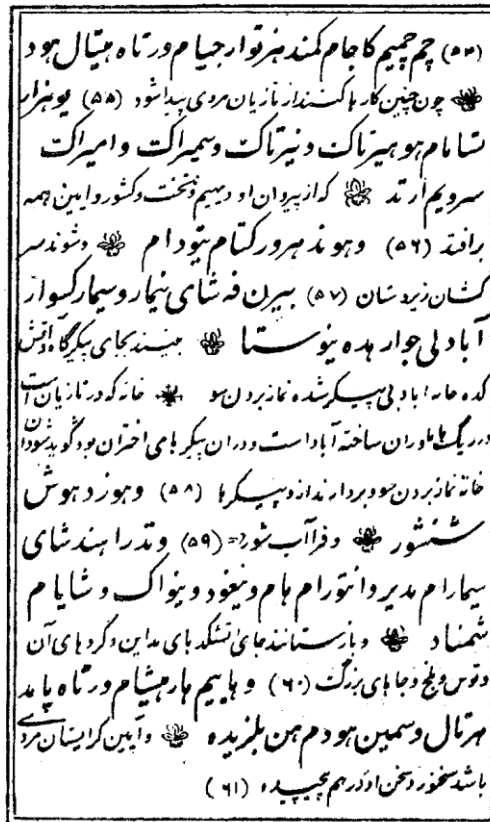 (۵۴) چم چمیم کاجام کمند هزتوار جیام ورتاه هیتال هود
چون چنین کارها کنند از تازیان مردی پیدا شود (۵۵) یو هزار
شامام هو هیرتاک و نیرتاک و سمیراک و امیراک
سرویم ارتد که از پیروان او دیهیم و تخت و کشور و آیین همه
برافتد (۵۶) و هوند هرور کتام یتودام و شوند سر
کشان زیردستان (۵۷) بیرن فه شای نیمار و سیمار کسوار
آباد لی جوار هده ینوستا بینند بجای پیکر گاه و آتش
کده خانه آباد بی پیکر شده نماز بردن سو خانه که در تازیان است
در ریگ هاماوران ساخته آباد است و در آن پیکرهای اختران بود گوید شود آن
خانه نماز بردن سو و بردارند از و پیکرها (۵۸) و هوزد هوش
شنشور و فراآب شور (۵۹) وتدرا هند شای
سیمارام مدیر و انتورام هام و نیغود و ینواک و شایام
شمناد و باز ستانند جای آتشکدهای مداین و گردهای آن
و توس و بلخ و جاهای بزرگ (۶۰) و هاییم هار هیشام ورتاه پامد
هرتال و سمین هودم هن بلزیده و آیین گر ایشان مردی
باشد سخنور و سخن او درهم پیچیده (۶۱)